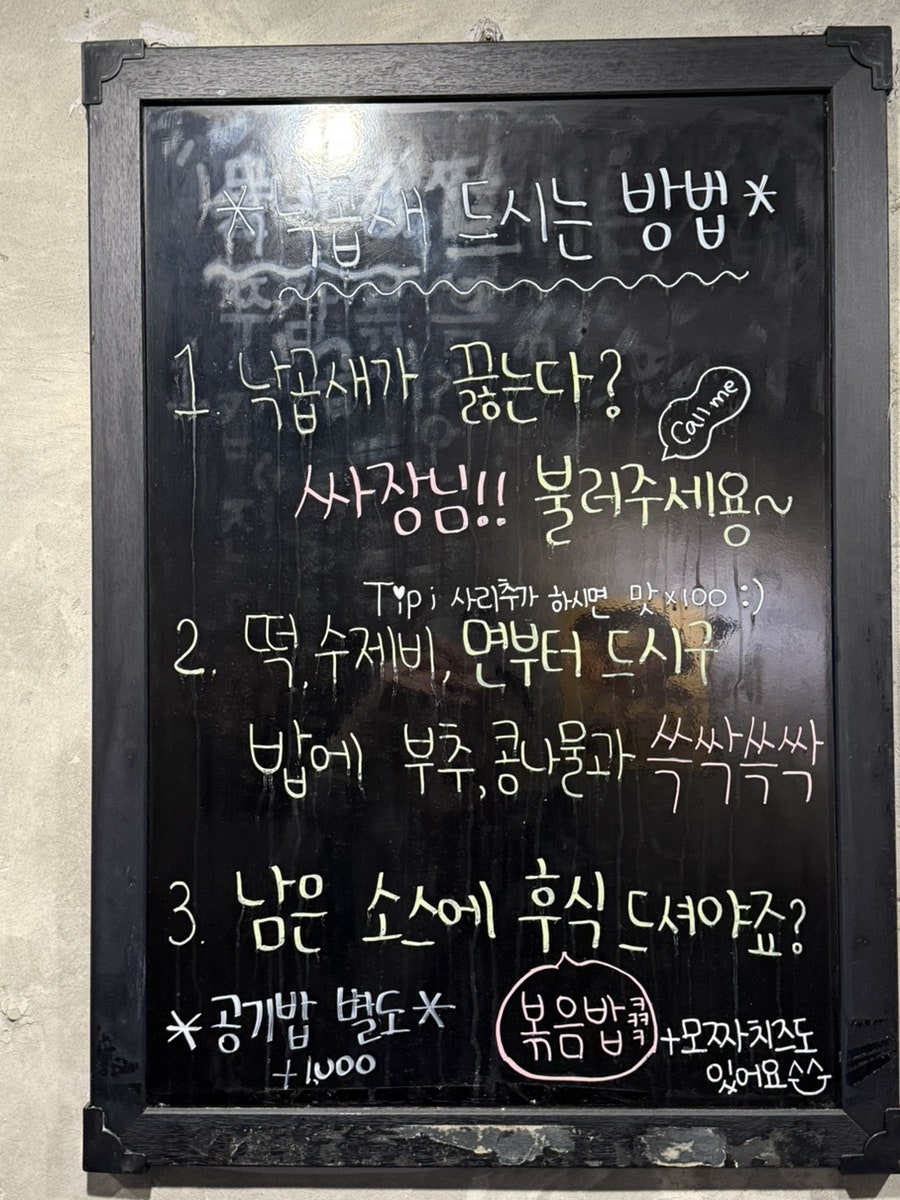 *낙곱새 드시는 방법*
1. 낙곱새가 끓는다?
Call me
싸장님!! 불러주세용~
Tip; 사리추가 하시면 맛x100 :)
2. 떡,수제비,면부터 드시구
밥에 부추,콩나물과 쓱싹쓱싹
3. 남은 소스에 후식 드셔야죠?
*공기밥 별도*
+1,000
볶음밥ㅋㅋㅋㅋ
+모짜치즈도
있어요^^